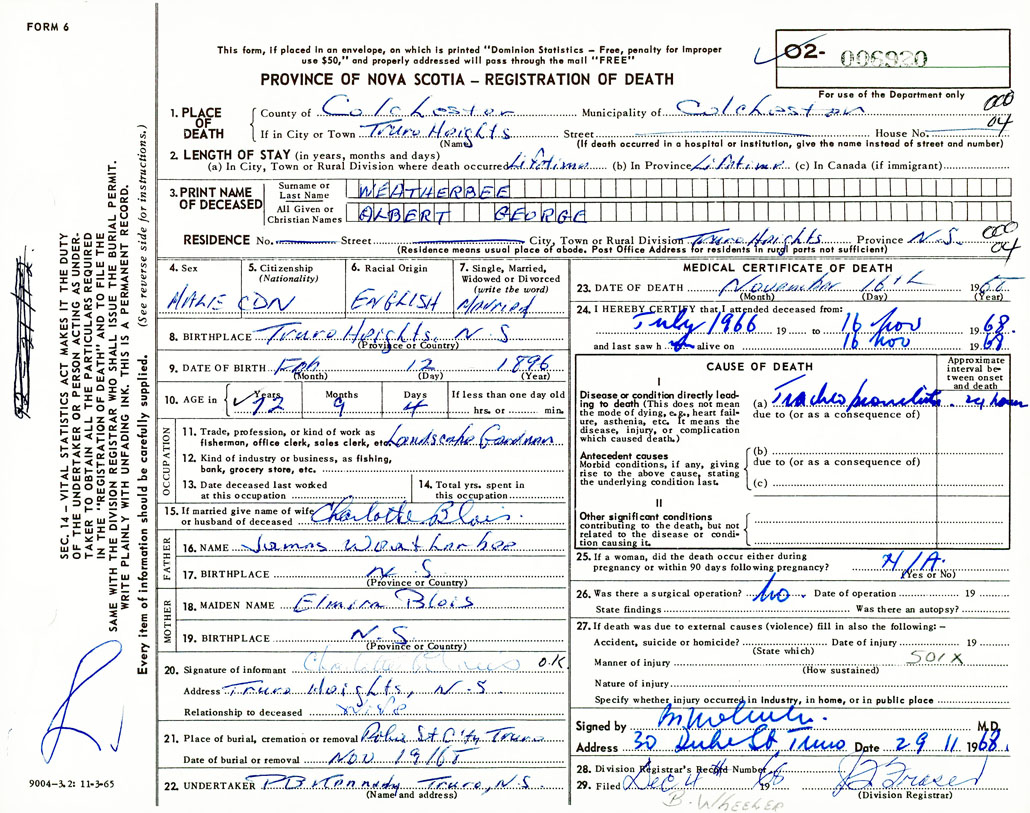 FORM 6
This form, if placed in an envelope, on which is printed "Dominion Statistics – Free, penalty for improper
use $50," and properly addressed will pass through the mail "FREE"
O2- 006920
PROVINCE OF NOVA SCOTIA – REGISTRATION OF DEATH
For use of the Department only
000
04
1. PLACE OF DEATH County of Colchester Municipality of Colchester
If in City or Town Truro Heights Street House No.
(Name) (If death occurred in a hospital or institution, give the name instead of street and number)
2. LENGTH OF STAY (in years, months and days)
(a) In City, Town or Rural Division where death occurred Lifetime (b) In Province Lifetime (c) In Canada (if immigrant)
3. PRINT NAME OF DECEASED Surname or Last Name WEATHERBEE
All Given or Christian Names ALBERT GEORGE
RESIDENCE No. Street City, Town or Rural Division Truro Heights Province N.S.
000
04
(Residence means usual place of abode. Post Office Address for residents in rural parts not sufficient)
4. Sex MALE
5. Citizenship (Nationality) CDN
6. Racial Origin ENGLISH
7. Single, Married, Widowed or Divorced (write the word) Married
8. BIRTHPLACE Truro Heights, N.S
(Province or Country)
9. DATE OF BIRTH Feb 12 1896
(Month) (Day) (Year)
10. AGE in Years 72 Months 9 Days 4 If less than one day old hrs. or min.
OCCUPATION
11. Trade, profession, or kind of work as
fisherman, office clerk, sales clerk, etc. Landscape Gardner
12. Kind of industry or business, as fishing,
bank, grocery store, etc.
13. Date deceased last worked
at this occupation
14. Total yrs. spent in
this occupation
15. If married give name of wife
or husband of deceased Charlotte Blois.
FATHER
16. NAME James Weatherbee
17. BIRTHPLACE N.S
(Province or Country)
MOTHER
18. MAIDEN NAME Elmira Blois
19. BIRTHPLACE N.S
(Province or Country)
20. Signature of informant O.K.
Address Truro Heights, N.S
Relationship to deceased wife
21. Place of burial, cremation or removal St City Truro
Date of burial or removal Nov 19/6
22. UNDERTAKER P B Kennedy Truro, N.S.
(Name and address)
MEDICAL CERTIFICATE OF DEATH
23. DATE OF DEATH November 16th 196
(Month) (Day) (Year)
24. I HEREBY CERTIFY that I attended deceased from:
July 1966 19 to 16 Nov 1968.
and last saw h alive on 16 Nov 1968
CAUSE OF DEATH
Approximate interval between onset and death
I
Disease or condition directly leading to death (This does not mean
the mode of dying, e.g., heart failure, asthenia, etc. It means the
disease, injury, or complication
which caused death.)
(a) Tracheobronchitis 24 hours
due to (or as a consequence of)
Antecedent causes
Morbid conditions, if any, giving
rise to the above cause, stating
the underlying condition last.
(b)
due to (or as a consequence of)
(c)
II
Other significant conditions
contributing to the death, but not
related to the disease or condition causing it.
25. If a woman, did the death occur either during
pregnancy or within 90 days following pregnancy? N/A.
(Yes or No)
26. Was there a surgical operation? No. Date of operation 19
State findings Was there an autopsy?
27. If death was due to external causes (violence) fill in also the following: –
Accident, suicide or homicide? Date of injury 19
(State which)
Manner of injury 501X
(How sustained)
Nature of injury
Specify whether injury occurred in Industry, in home, or in public place
Signed by M.D.
Address 30 Duke St Truro Date 29 11 1968.
28. Division Registrar's Record Number
29. Filed Dec 4 1968 Fraser
(Division Registrar)
B. WHEELER
SEC. 14 – VITAL STATISTICS ACT MAKES IT THE DUTY
OF THE UNDERTAKER OR PERSON ACTING AS UNDER-
TAKER TO OBTAIN ALL THE PARTICULARS REQUIRED
IN THE "REGISTRATION OF DEATH" AND TO FILE THE
SAME WITH THE DIVISION REGISTRAR WHO SHALL ISSUE THE BURIAL PERMIT.
WRITE PLAINLY WITH UNFADING INK. THIS IS A PERMANENT RECORD.
Every item of information should be carefully supplied. (See reverse side for instructions.)
9004–3.2: 11-3-65